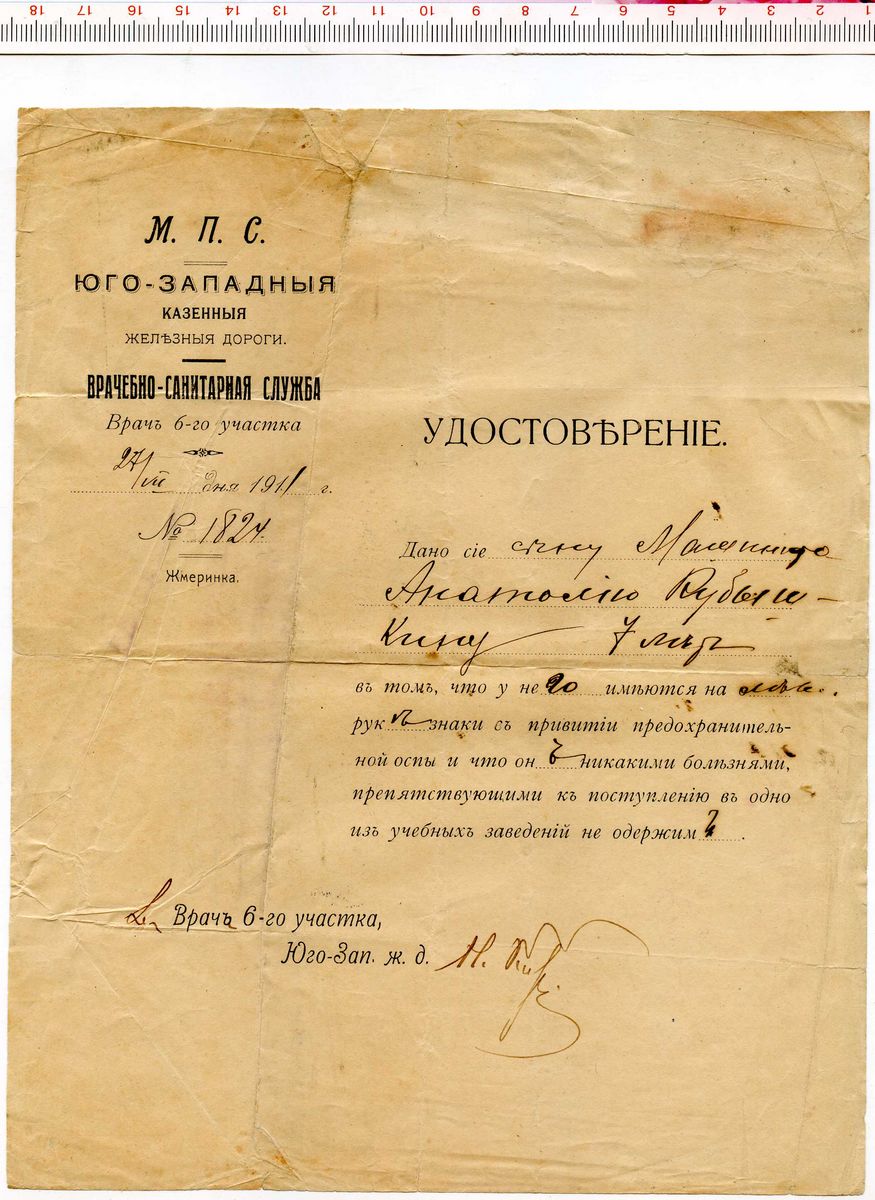 18 17 16 15 14 13 12 11 10 9 8 7 6 5 4 3 2 1
М. П. С.
ЮГО-ЗАПАДНЫЯ
КАЗЕННЫЯ
ЖЕЛѢЗНЫЯ ДОРОГИ.
ВРАЧЕБНО-САНИТАРНАЯ СЛУЖБА
Врачъ 6-го участка
27/VII дня 1911 г.
№ 1824.
Жмеринка.
УДОСТОВѢРЕНІЕ.
Дано сіе сыну Машиниста
Анатолію Кубыш-
кину 7 лѣтъ
въ томъ, что у него имѣются на лѣв.
рукѣ знаки съ привитіи предохранитель-
ной оспы и что онъ никакими болѣзнями,
препятствующими къ поступленію въ одно
изъ учебныхъ заведеній не одержимъ.
Врачъ 6-го участка,
Юго-Зап. ж. д. Н.